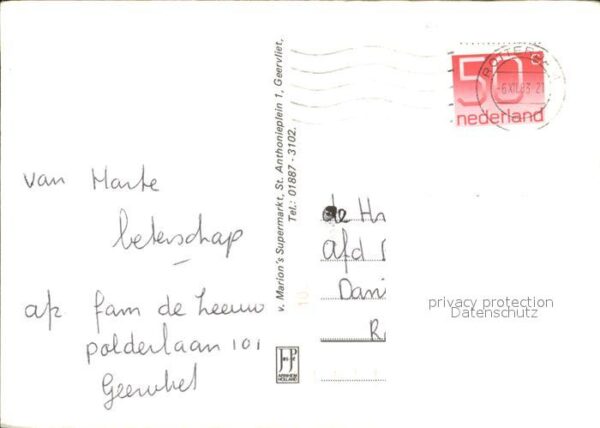 van Harte
beterschap
afz fam de Leeuw
polderlaan 101
Geervliet
v. Marion's Supermarkt, St. Anthonieplein 1, Geervliet,
Tel.: 01887 - 3102.
50
nederland
-6.XII.83.21
de H
afd
Dani
R
privacy protection
Datenschutz
ARNHEM
HOLLAND